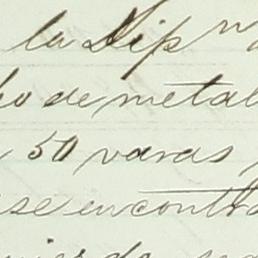 la Dip n
ho de metal
50 varas
se encontra